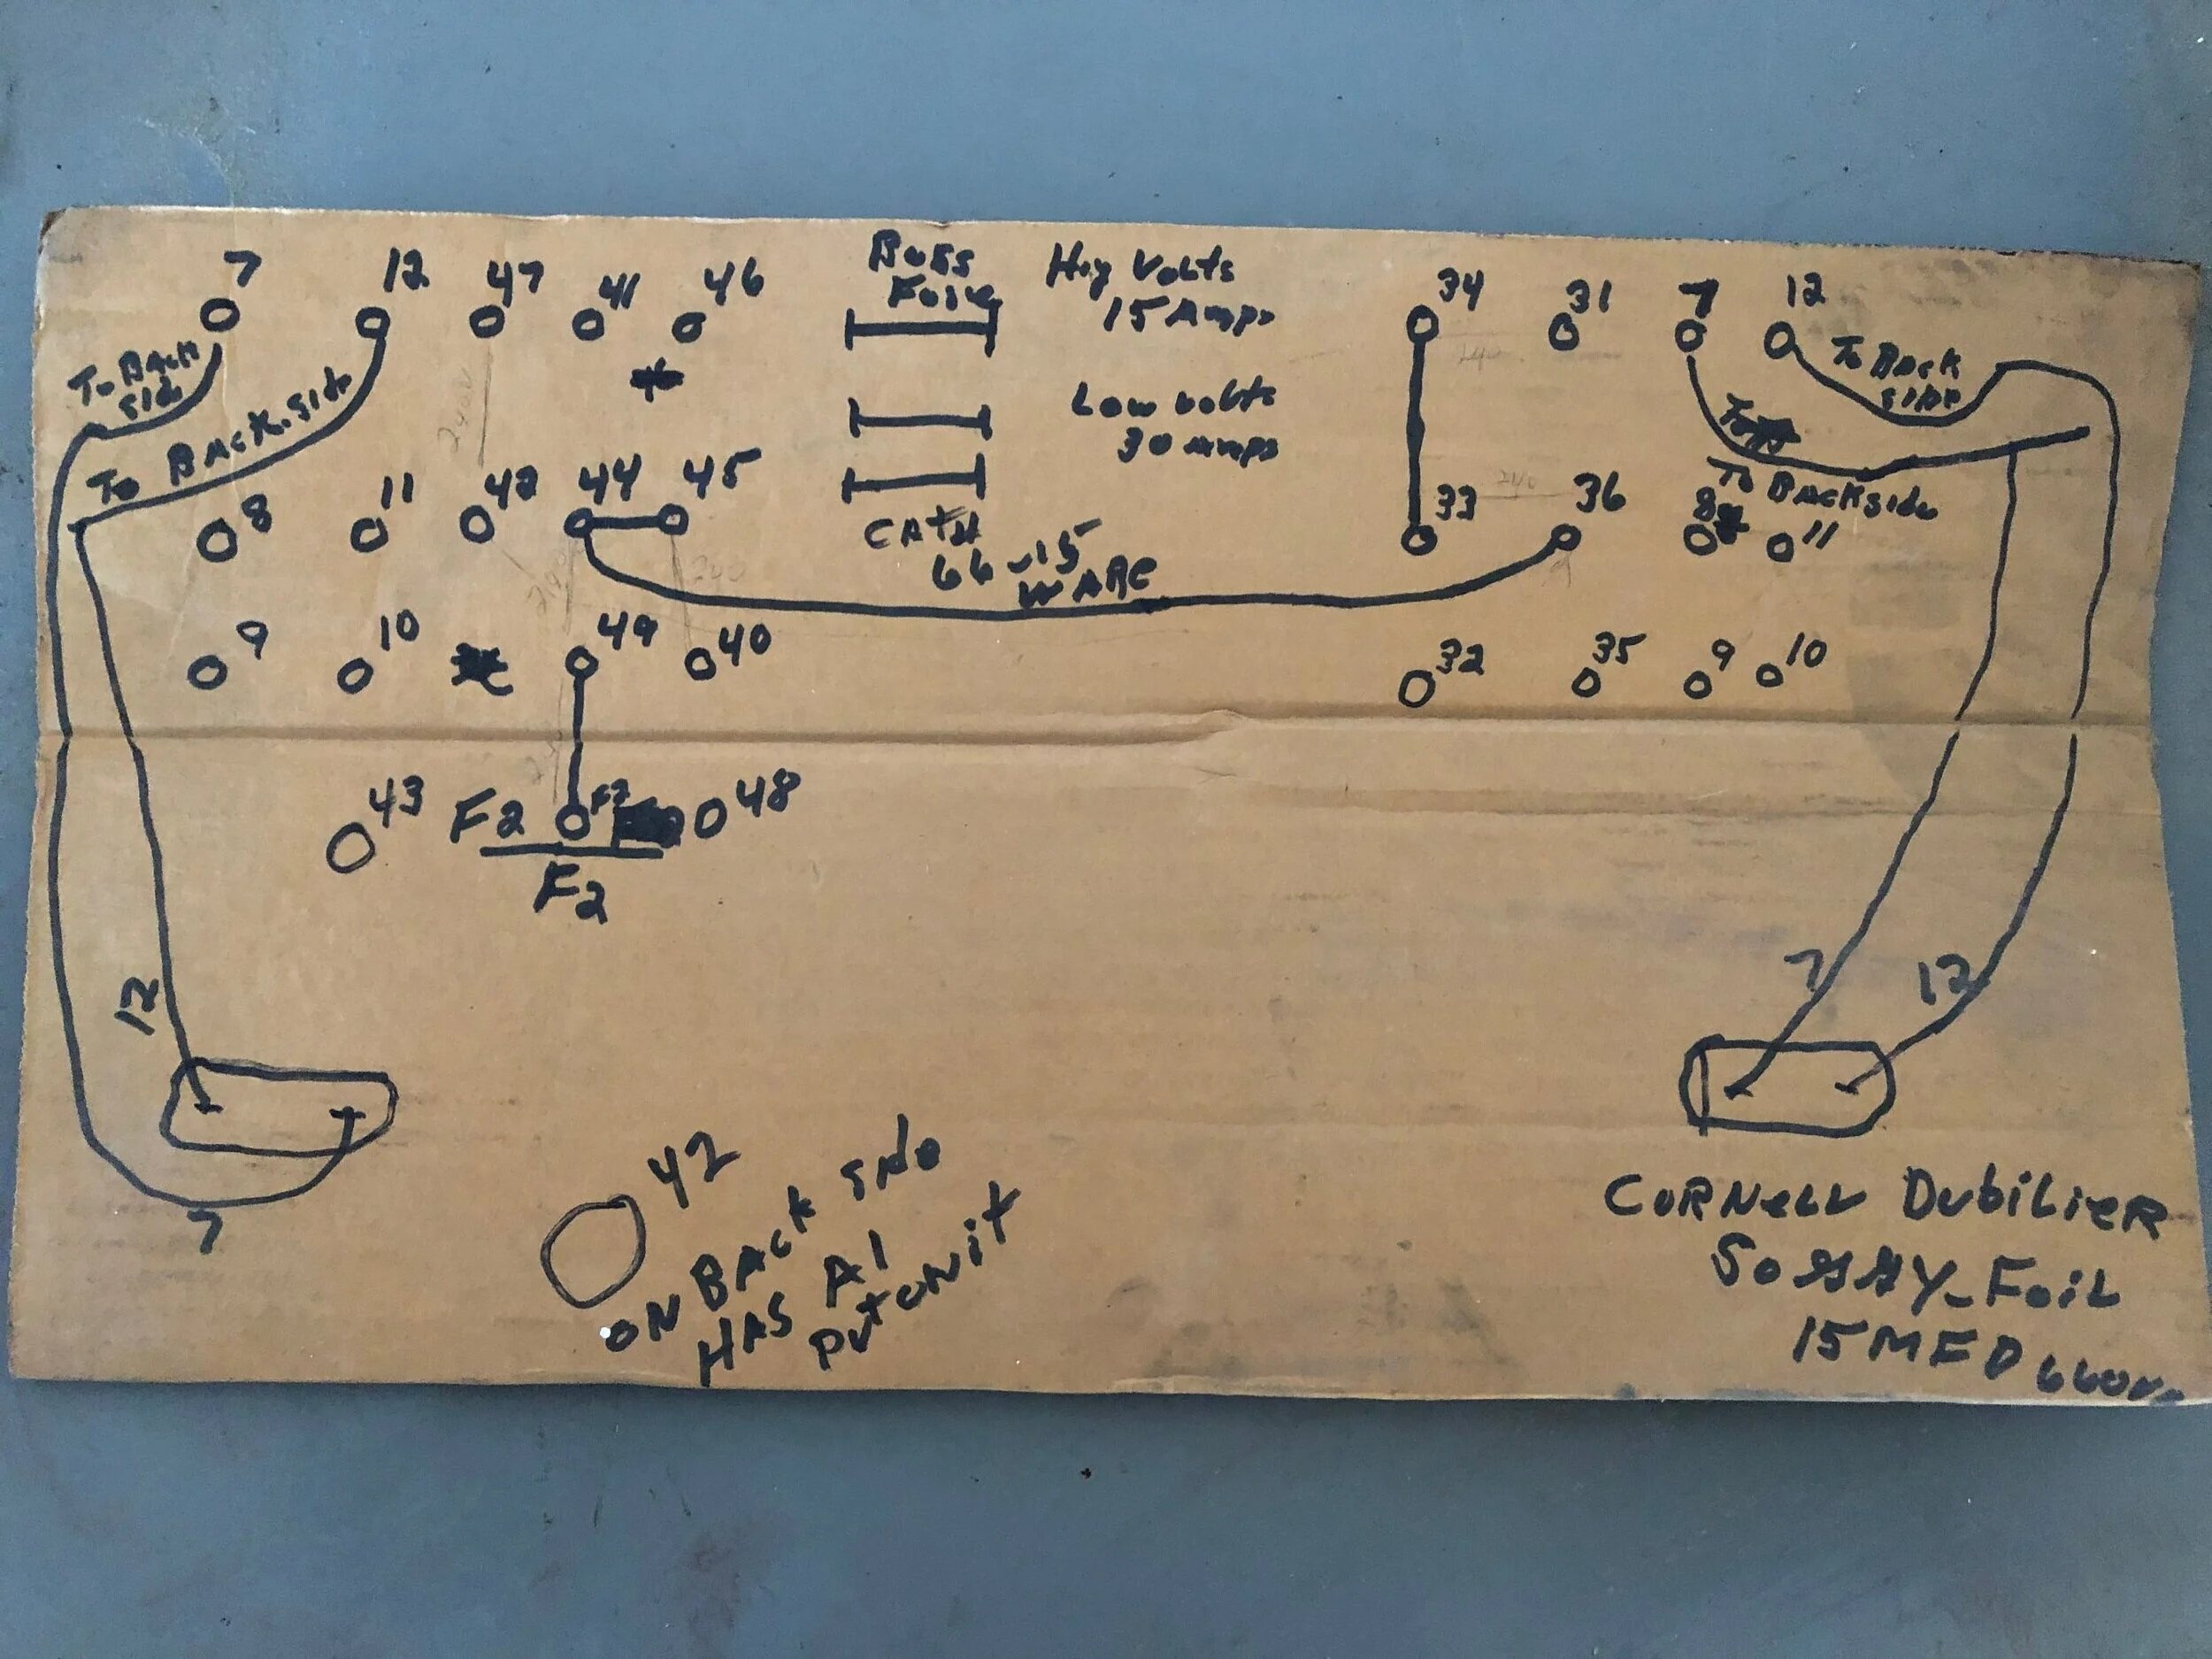 7
12
47
41
46
Buss
Hig Volts
15 Amps
34
31
7
12
To Back
side
To Back side
Low volts
30 Amps
To Back
side
240
240V
8
11
42
44
45
33
240
36
To Backside
8
11
CAT#
66-15
WARE
9
10
49
40
32
35
9
10
43
F2
F2
48
F2
12
7
12
7
42
ON BACK SIde
HAS A1
PUT ON it
CORNeLL DubiLieR
15 MFD 660